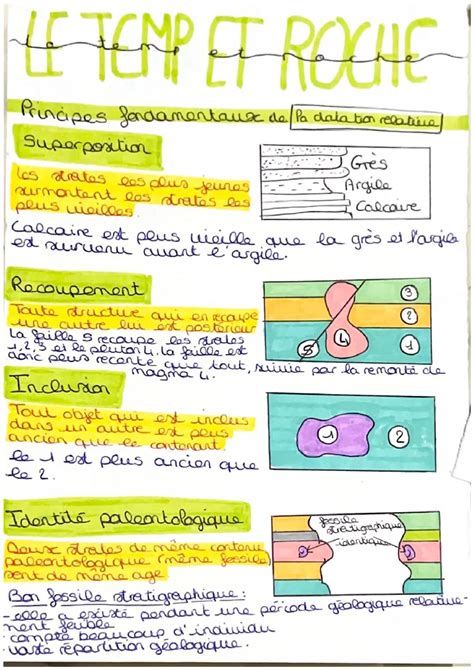 LE TEMP ET ROCHE
Le temp et roche
Principes fondamentaux de la datation relative
Superposition
Les strates les plus jeunes
surmontent les strates les
plus vieilles.
Grès
Argile
Calcaire
Calcaire est plus vieille que la grès et l'argile
est survenu avant l'argile.
Recoupement
Toute structure qui en recoupe
une autre lui est postérieur
la faille 5 recoupe les strates
1, 2, 3 et le pluton 4. la faille est
donc plus récente que tout, suivie par la remonté de
magma 4.
3
2
1
5
4
Inclusion
Tout objet qui est inclus
dans un autre est plus
ancien que le contenant.
le 1 est plus ancien que
le 2.
1
2
Identité paleontologique
Deux strates de même contenu
paleontologique (même fossile)
sont de même age.
fossile
stratigraphique
identique
Bon fossile stratigraphique :
- elle a existé pendant une période géologique relative-
ment faible
- compte beaucoup d'individu
- vaste répartition géologique.